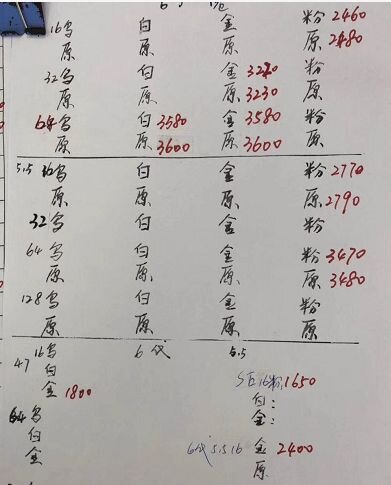 16乌 白 金 粉 2460
原 原 原 原 2480
32乌 白 金 3210 粉
原 原 原 3230 原
64乌 白 3580 金 3580 粉
原 原 3600 原 3600 原
5.5 16乌 白 金 粉 2770
原 原 原 原 2790
32乌 白 金 粉
64乌 白 金 粉 3470
原 原 原 原 3480
128乌 白 金 粉
原 原 原 原
4.7 16乌 6代 5.5
白 5后16粉 1650
金 1800 白:
金:
64乌
白 6代 5.5 16 金 2400
金 原